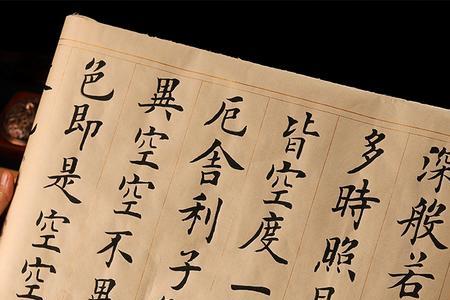 深般若
多時照
皆空度一
厄舍利子
異空空不異
色即是空空